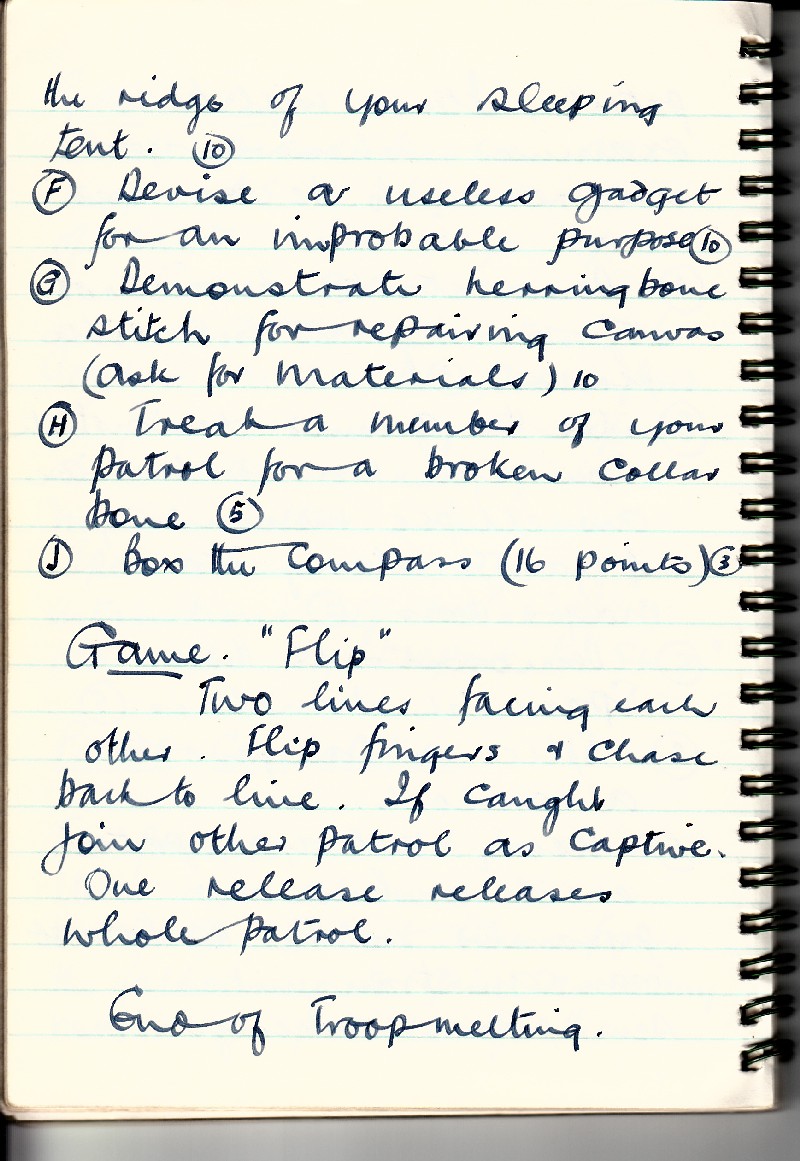 the ridge of your sleeping
tent. (10)
(F) Devise a useless gadget
for an improbable purpose (10)
(G) Demonstrate herringbone
stitch for repairing canvas
(ask for materials) 10
(H) Treat a member of your
patrol for a broken collar
bone (5)
(J) Box the compass (16 points) (3)
Game. "Flip"
Two lines facing each
other. Flip fingers & chase
back to line. If caught
join other patrol as captive.
One release releases
whole patrol.
End of Troopmeeting.